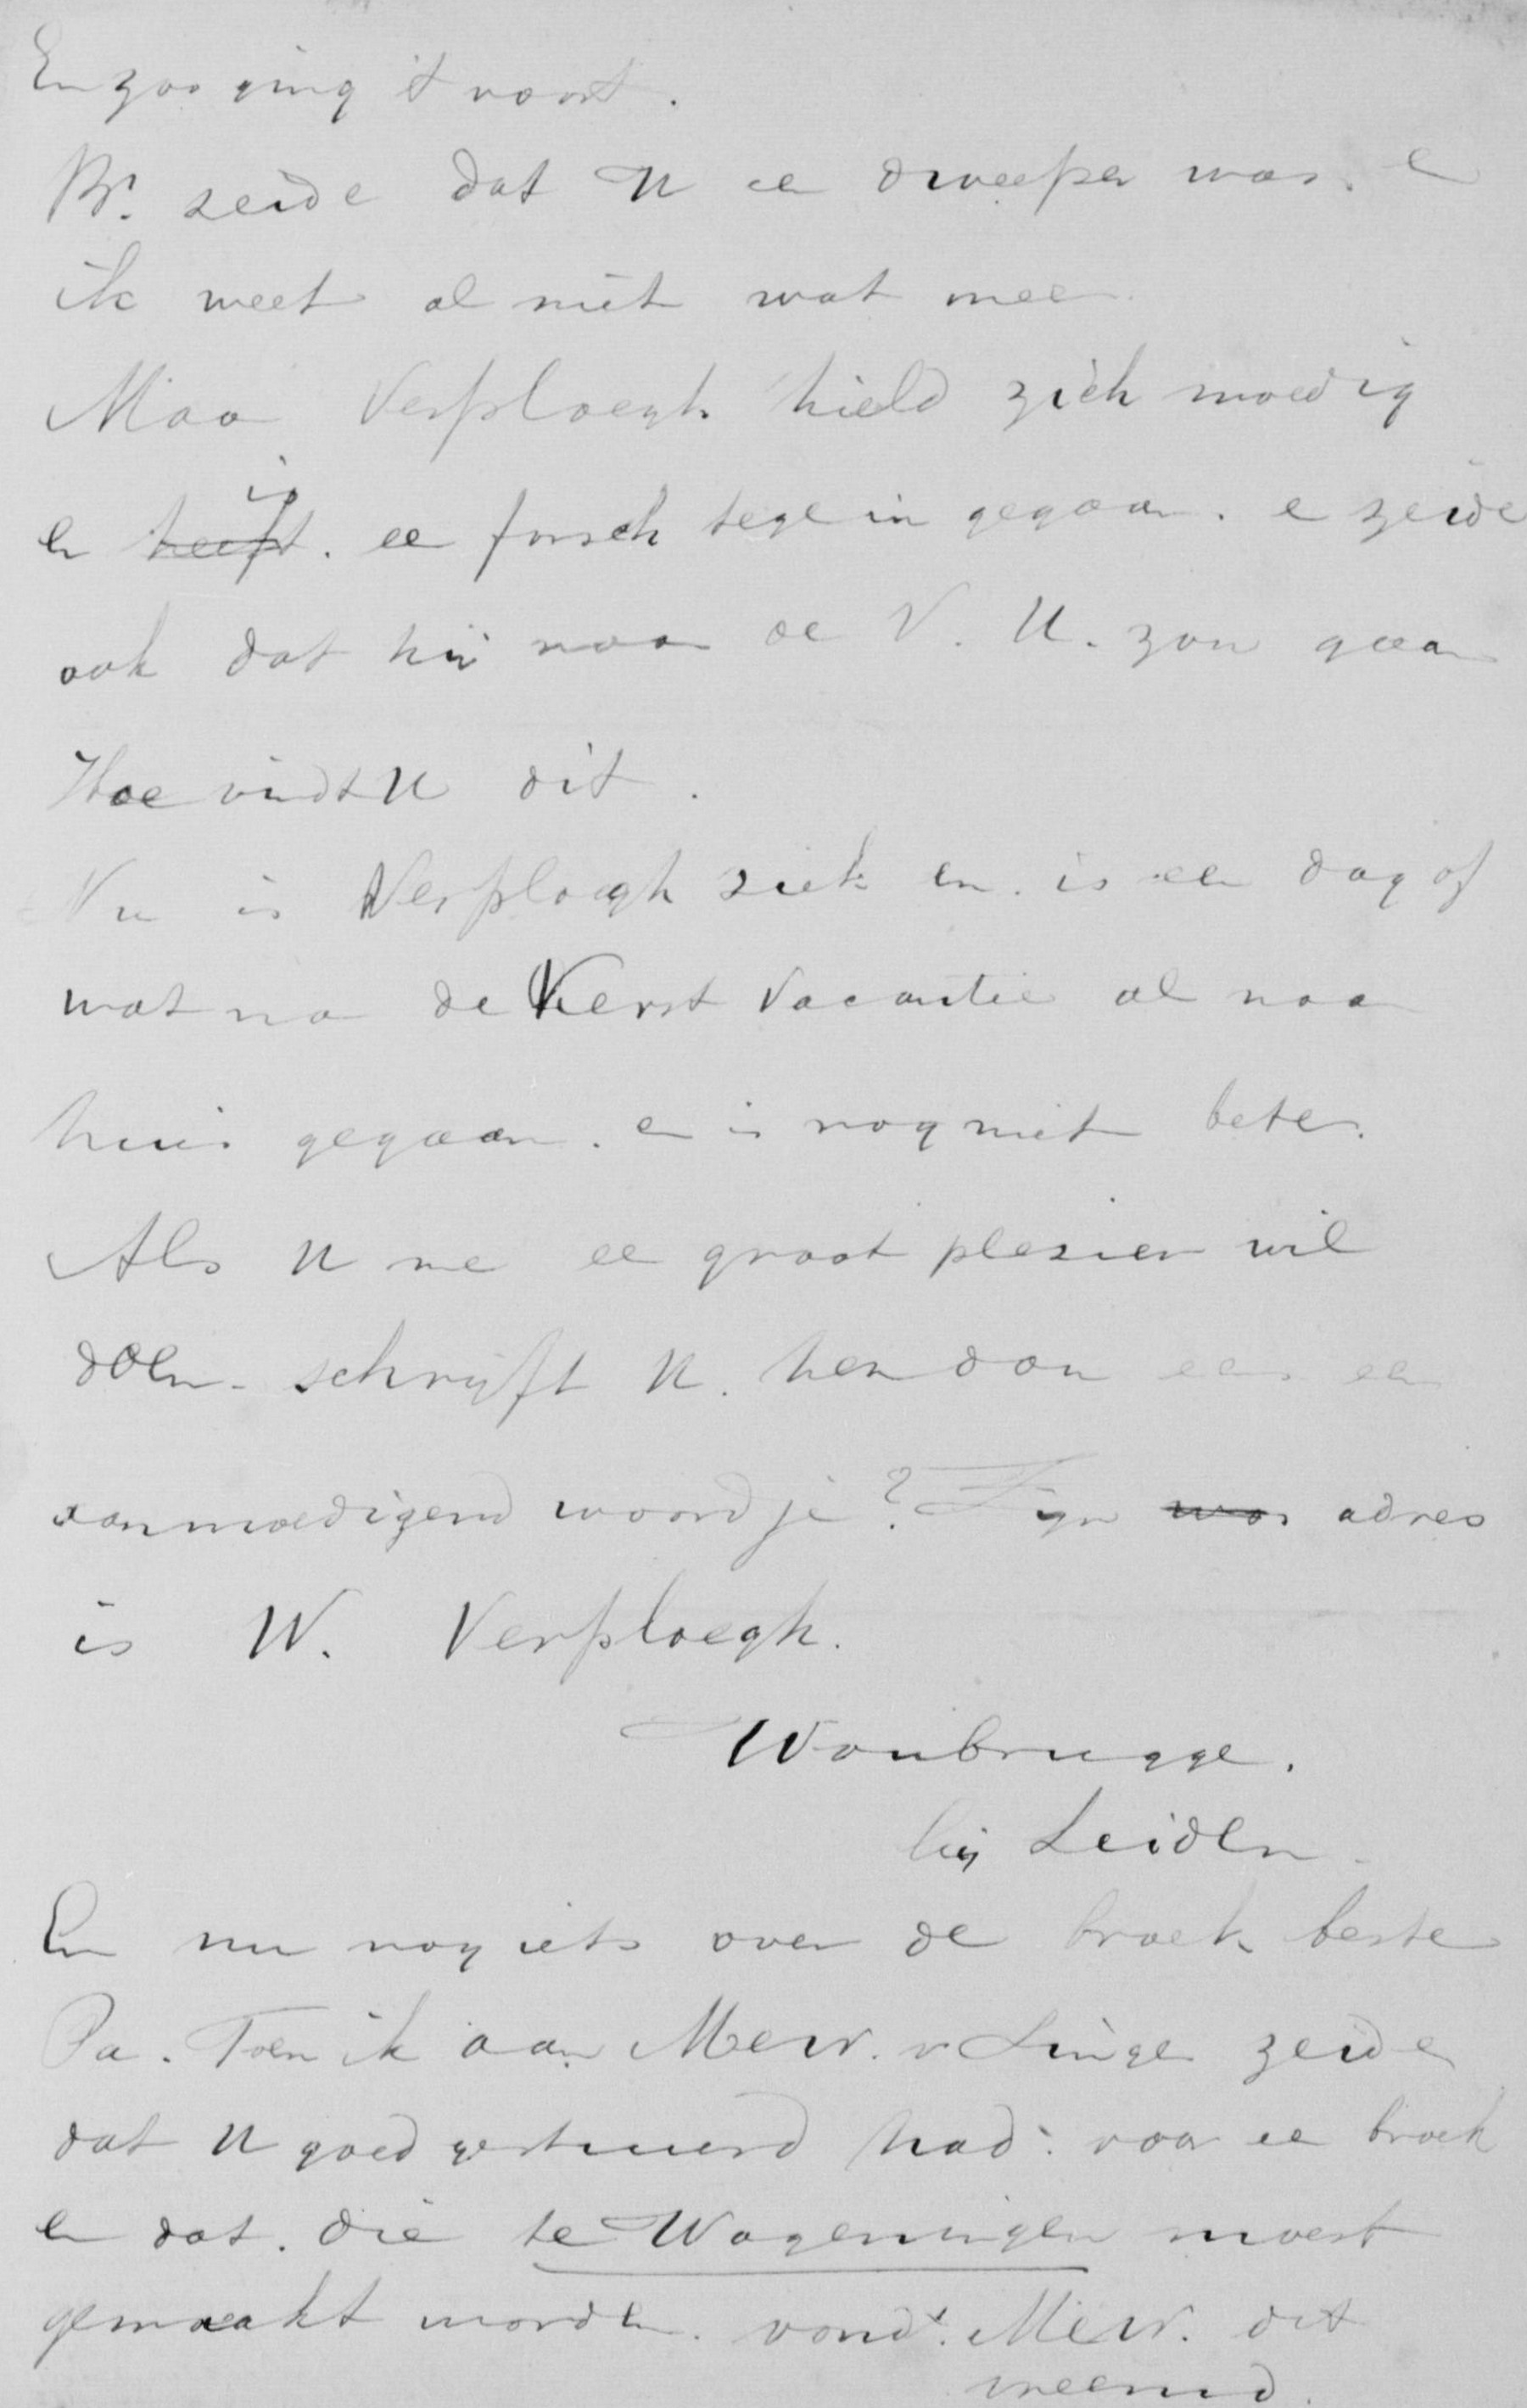 En zoo ging 't voort.
Br. zeide dat U een dweeper was. en
ik weet al niet wat meer
Maar Verploegh hield zich moedig
is
en heeft. er forsch tegen in gegaan. en zeide
ook dat hij naar de V. U. zou gaan
Hoe vindt U dit.
Nu is Verploegh ziek en. is een dag of
wat na de Kerst Vacantie al naar
huis gegaan. en is nog niet beter.
Als U me een groot plezier wil
doen. schrijft U. hem dan eens een
aanmoedigend woordje? Zijn was adres
is W. Verploegh.
Woubrugge.
bij Leiden.
En nu nog iets over de broek beste
Pa. Toen ik aan Mevr. v Linge zeide
dat U goed gestuurd had. voor een broek
en dat. die te Wageningen moest
gemaakt worden. vond. Mevr. dit
vreemd.